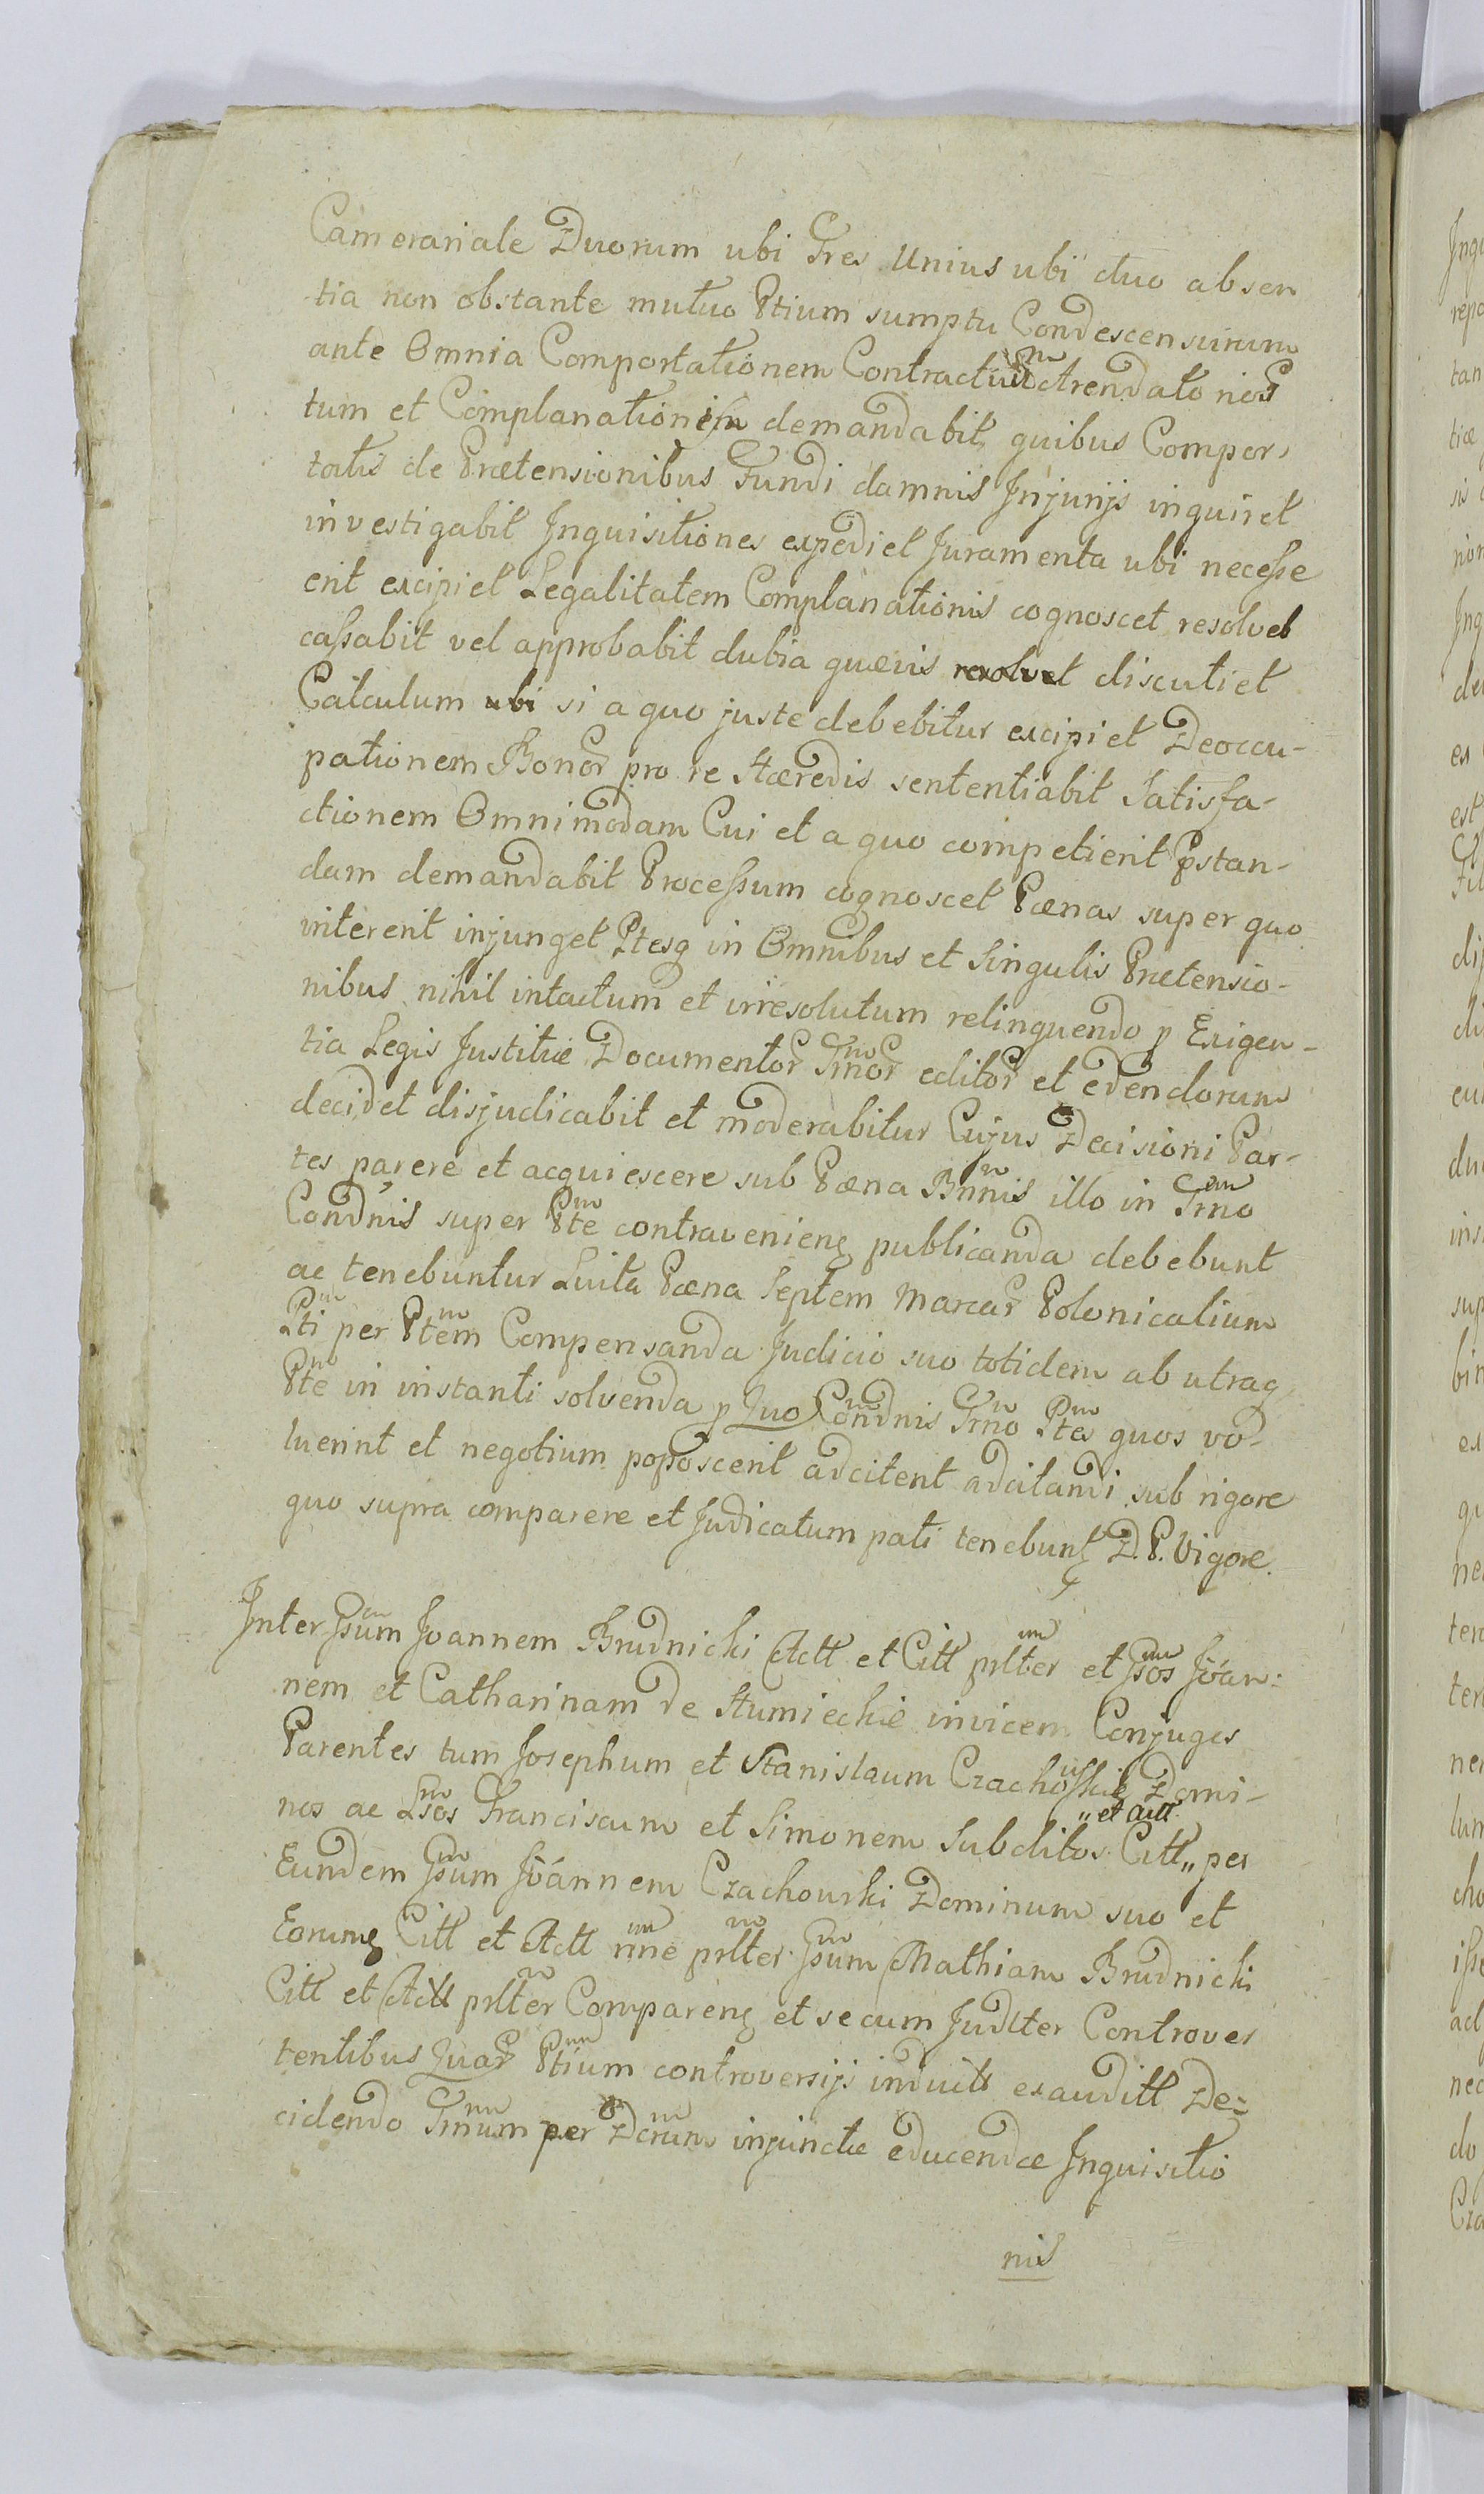 Camerariale Duorum ubi Tres Unius ubi duo absen
tia non obstante mutuo Ptium sumptu Condescensurum
ante Omnia Comportationem Contractuum Arendato rios
tum et Complanationem demandabit quibus Compor,
tatis de Prætensionibus Fundi damnis Injurijs inquiret
investigabit Inquisitiones expediet Juramenta ubi necesse
erit excipiet Legalitatem Complanationis cognoscet resolvet
cassabit vel approbabit dubia quævis resolvet discutiet
Calculum ubi si a quo juste debebitur excipiet Deoccu-
pationem Bonor pro re Hæredis sententiabit Satisfa-
ctionem Omnimodam Cui et a quo competierit pstan-
dam demandabit Processum cognoscet Pænas super quo
intererit injunget Ptesq in Omnibus et Singulis Prætensio-
nibus nihil intactum et irresolutum relinquendo p Exigen-
tia Legis Justitiæ Documentor Tmor editor et edendorum
decidet disjudicabit et moderabitur Cujus Decisioni Par-
tes parere et acquiescere sub Pæna Bnnis illo in Trno
Condnis super Pte contravenienq publicanda debebunt
ac tenebuntur Luita Pæna Septem Marcar Polonicalium
Pti per Ptem Compensanda Judicio suo totidem ab utraq
Pte in instanti solvenda p Quo Condnis Trno Ptes quos vo-
luerint et negotium poposcerit adcitent adcitandi sub rigore
quo supra comparere et Judicatum pati tenebunt D. P. Vigore.
Inter Gsum Joannem Brudnicki Act et Citt prltter et Gsos Joan:
nem et Catharinam de Stumieckie invicem Conjuges
Parentes tum Josephum et Stanislaum Czachowskie Domi-
nos ac Lsos Franciscum et Simonem Subditos Citt,, per
,,et Actt
Eundem Gsum Joannem Czachowski Dominum suo et
Eorumq Citt et Actt nne prltter Gsum Mathiam Brudnicki
Citt et Actt prltter Comparenq et secum Judlter Controver
tentibus Quar Ptium controversijs inductt exauditt De-
cidendo Tmum per Dcrum injunctæ educendæ Inquisitio
nis